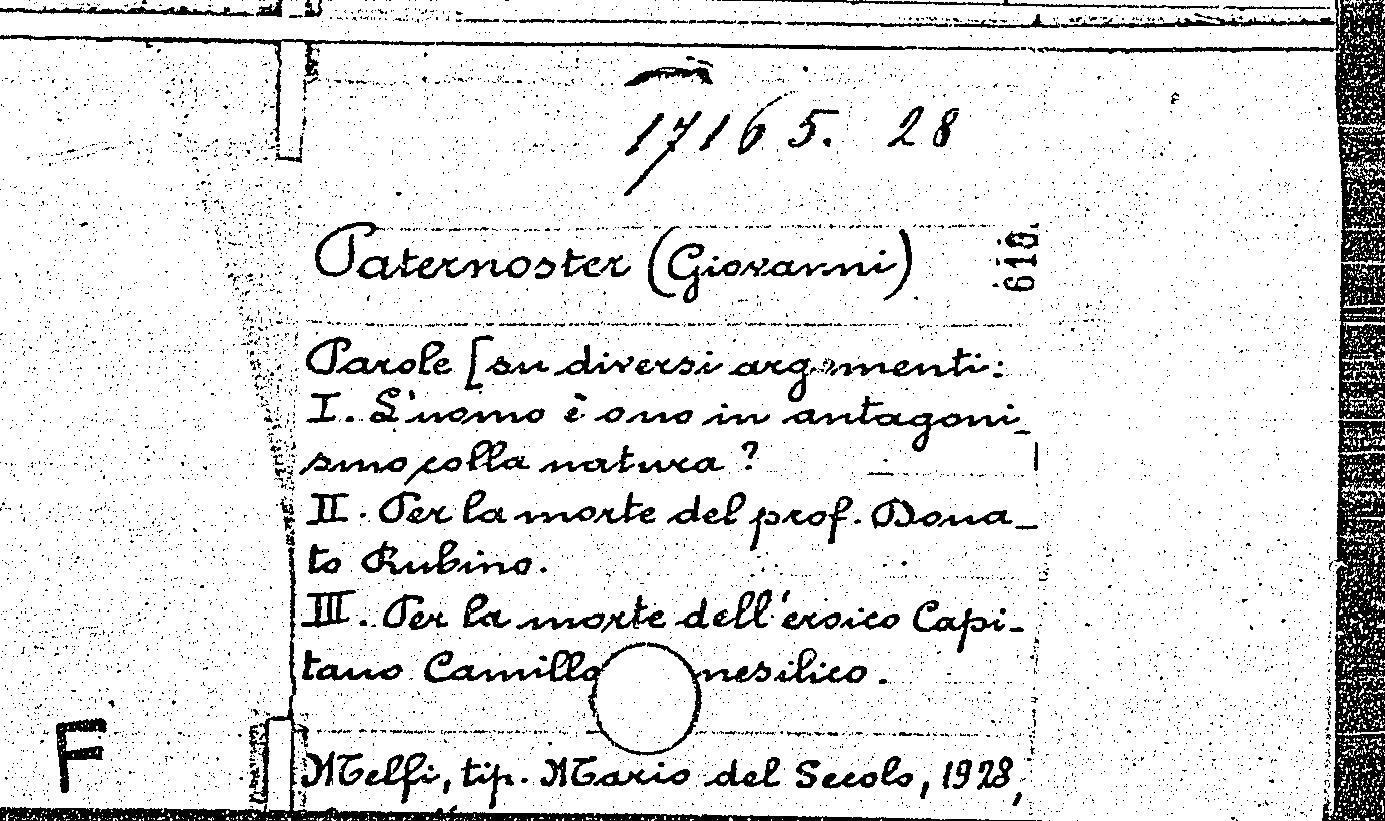 17165. 28
Paternoster (Giovanni)
618.
Parole [su diversi argomenti:
I. L'uomo è o no in antagoni_
smo colla natura?
II. Per la morte del prof. Dona_
to Rubino.
III. Per la morte dell'eroico Capi_
tano Camillo nesilico.
Melfi, tip. Mario del Secolo, 1928,
F